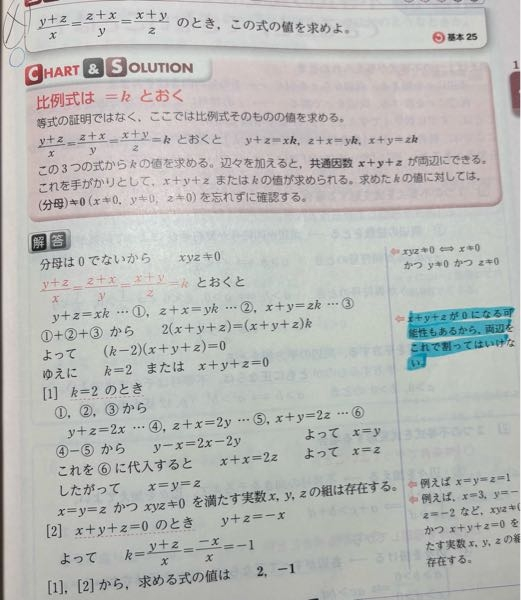 y+z/x = z+x/y = x+y/z のとき，この式の値を求めよ。
基本 25
CHART & SOLUTION
比例式は =k とおく
等式の証明ではなく，ここでは比例式そのものの値を求める。
y+z/x = z+x/y = x+y/z =k とおくと y+z=xk, z+x=yk, x+y=zk
この3つの式からkの値を求める。辺々を加えると，共通因数 x+y+z が両辺にできる。
これを手がかりとして，x+y+z またはkの値が求められる。求めたkの値に対しては，
(分母)≠0 (x≠0, y≠0, z≠0) を忘れずに確認する。
解答
分母は0でないから xyz≠0
⇦ xyz≠0 ⟺ x≠0
かつ y≠0 かつ z≠0
y+z/x = z+x/y = x+y/z =k とおくと
y+z=xk …①, z+x=yk …②, x+y=zk …③
①+②+③ から 2(x+y+z)=(x+y+z)k
よって (k-2)(x+y+z)=0
ゆえに k=2 または x+y+z=0
⇦ x+y+z が0になる可
能性もあるから，両辺を
これで割ってはいけな
い。
[1] k=2 のとき
①, ②, ③ から
y+z=2x …④, z+x=2y …⑤, x+y=2z …⑥
④-⑤ から y-x=2x-2y よって x=y
これを⑥に代入すると x+x=2z よって x=z
したがって x=y=z
x=y=z かつ xyz≠0 を満たす実数 x, y, z の組は存在する。
⇦ 例えば x=y=z=1
[2] x+y+z=0 のとき y+z=-x
よって k= y+z/x = -x/x =-1
⇦ 例えば，x=3, y=-
z=-2 など，xyz≠
かつ x+y+z=0 を
たす実数 x, y, z の組
存在する。
[1], [2] から，求める式の値は 2, -1